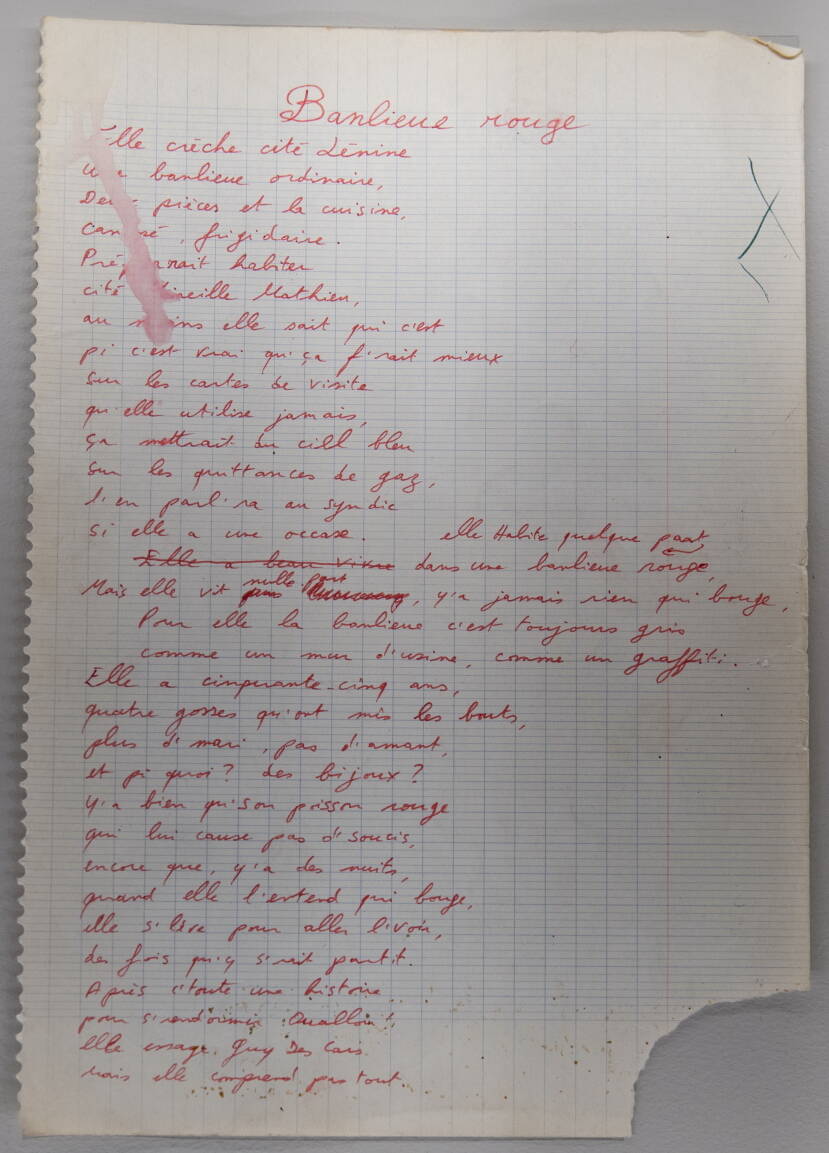 Banlieue rouge
Elle crèche cité Lénine
banlieue ordinaire,
pièces et la cuisine,
frigidaire.
habiter
cité Mireille Mathieu,
au moins elle sait qui c'est
pi c'est vrai qu'ça f'rait mieux
sur les cartes de visite
qu'elle utilise jamais,
ça mettrait du ciel bleu
sur les quittances de gaz,
l'en parl'ra au syndic
si elle a une occase. elle Habite quelque part
Elle a beau vivre dans une banlieue rouge,
Mais elle vit nulle part, y'a jamais rien qui bouge,
Pour elle la banlieue c'est toujours gris
comme un mur d'usine, comme un graffiti.
Elle a cinquante-cinq ans,
quatre gosses qu'ont mis les bouts,
plus d'mari, pas d'amant,
et pi quoi? des bijoux?
y'a bien qu'son poisson rouge
qui lui cause pas d'soucis,
encore que, y'a des nuits,
quand elle l'entend qui bouge,
elle s'lève pour aller l'voir,
des fois qu'y s'rait partit.
Après c'toute une histoire
pour s'rendormir
elle essaye Guy Des Cars
Mais elle comprend pas tout.